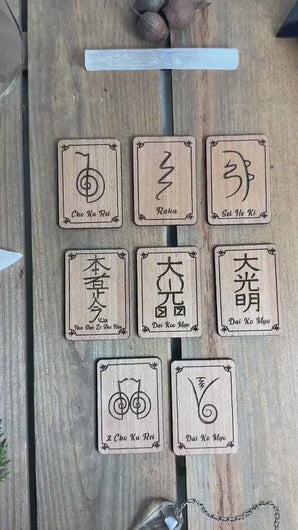 Cho Ku Rei
Raku
Sei He Ki
本
Hon Sha Ze Sho Nen
大
Dai Koo Myo
大光明
Dai Ko Myo
2 Cho Ku Rei
Dai Ko Myo